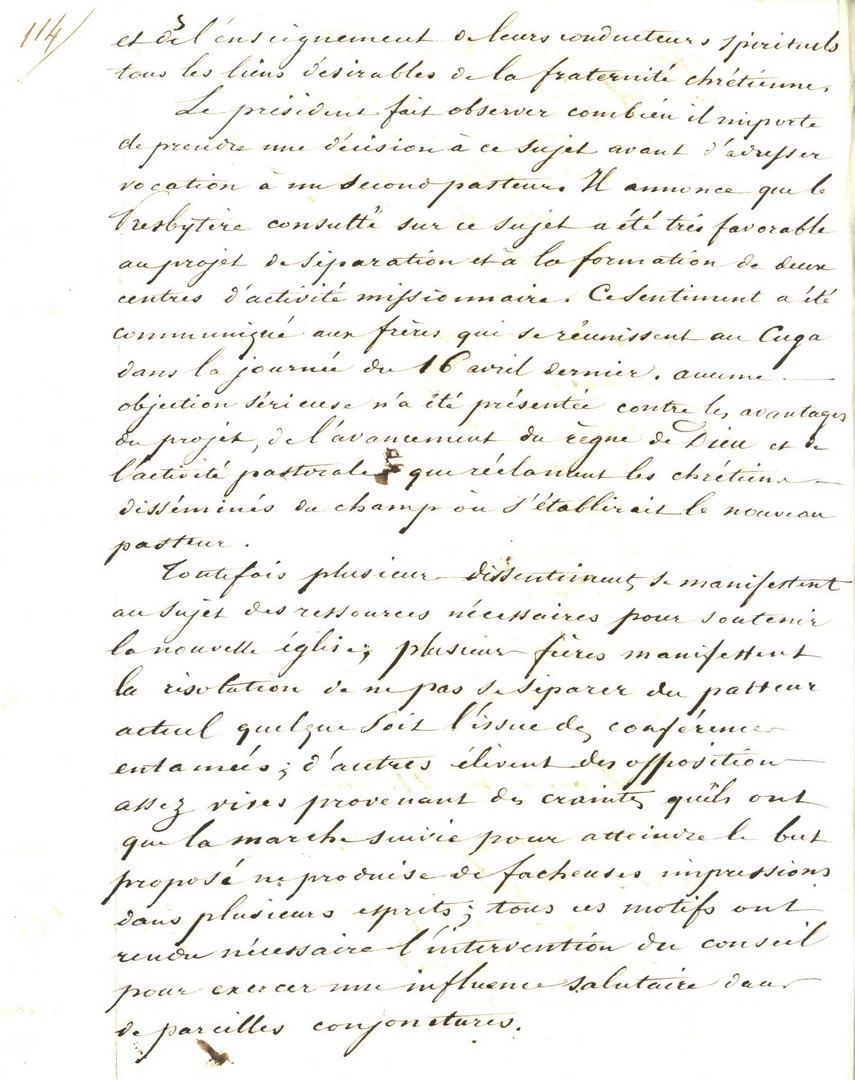 114/
et de l'enseignement de leurs conducteurs spirituels
tous les liens désirables de la fraternité chrétienne.
Le président fait observer combien il importe
de prendre une décision à ce sujet avant d'adresser
vocation à un second pasteur. Il annonce que le
Presbytère consulté sur ce sujet a été très favorable
au projet de séparation et à la formation de deux
centres d'activité missionnaire. Ce sentiment a été
communiqué aux frères qui se réunissent au Cuga
dans la journée du 16 avril dernier. aucune
objection sérieuse n'a été présentée contre les avantages
du projet, de l'avancement du règne de Dieu et de
l'activité pastorale que réclament les chrétiens
disséminés du champ où s'établirait le nouveau
pasteur.
Toutefois plusieurs dissentiments se manifestent
au sujet des ressources nécessaires pour soutenir
la nouvelle église; plusieurs frères manifestent
la résolution de ne pas se séparer du pasteur
actuel quelque soit l'issue des conférences
entamées; d'autres élèvent des opposition
assez vives provenant des craintes qu'ils ont
que la marche suivie pour atteindre le but
proposé ne produise de facheuses impressions
dans plusieurs esprits; tous ces motifs ont
rendu nécessaire l'intervention du conseil
pour exercer une influence salutaire dans
de pareilles conjonctures.